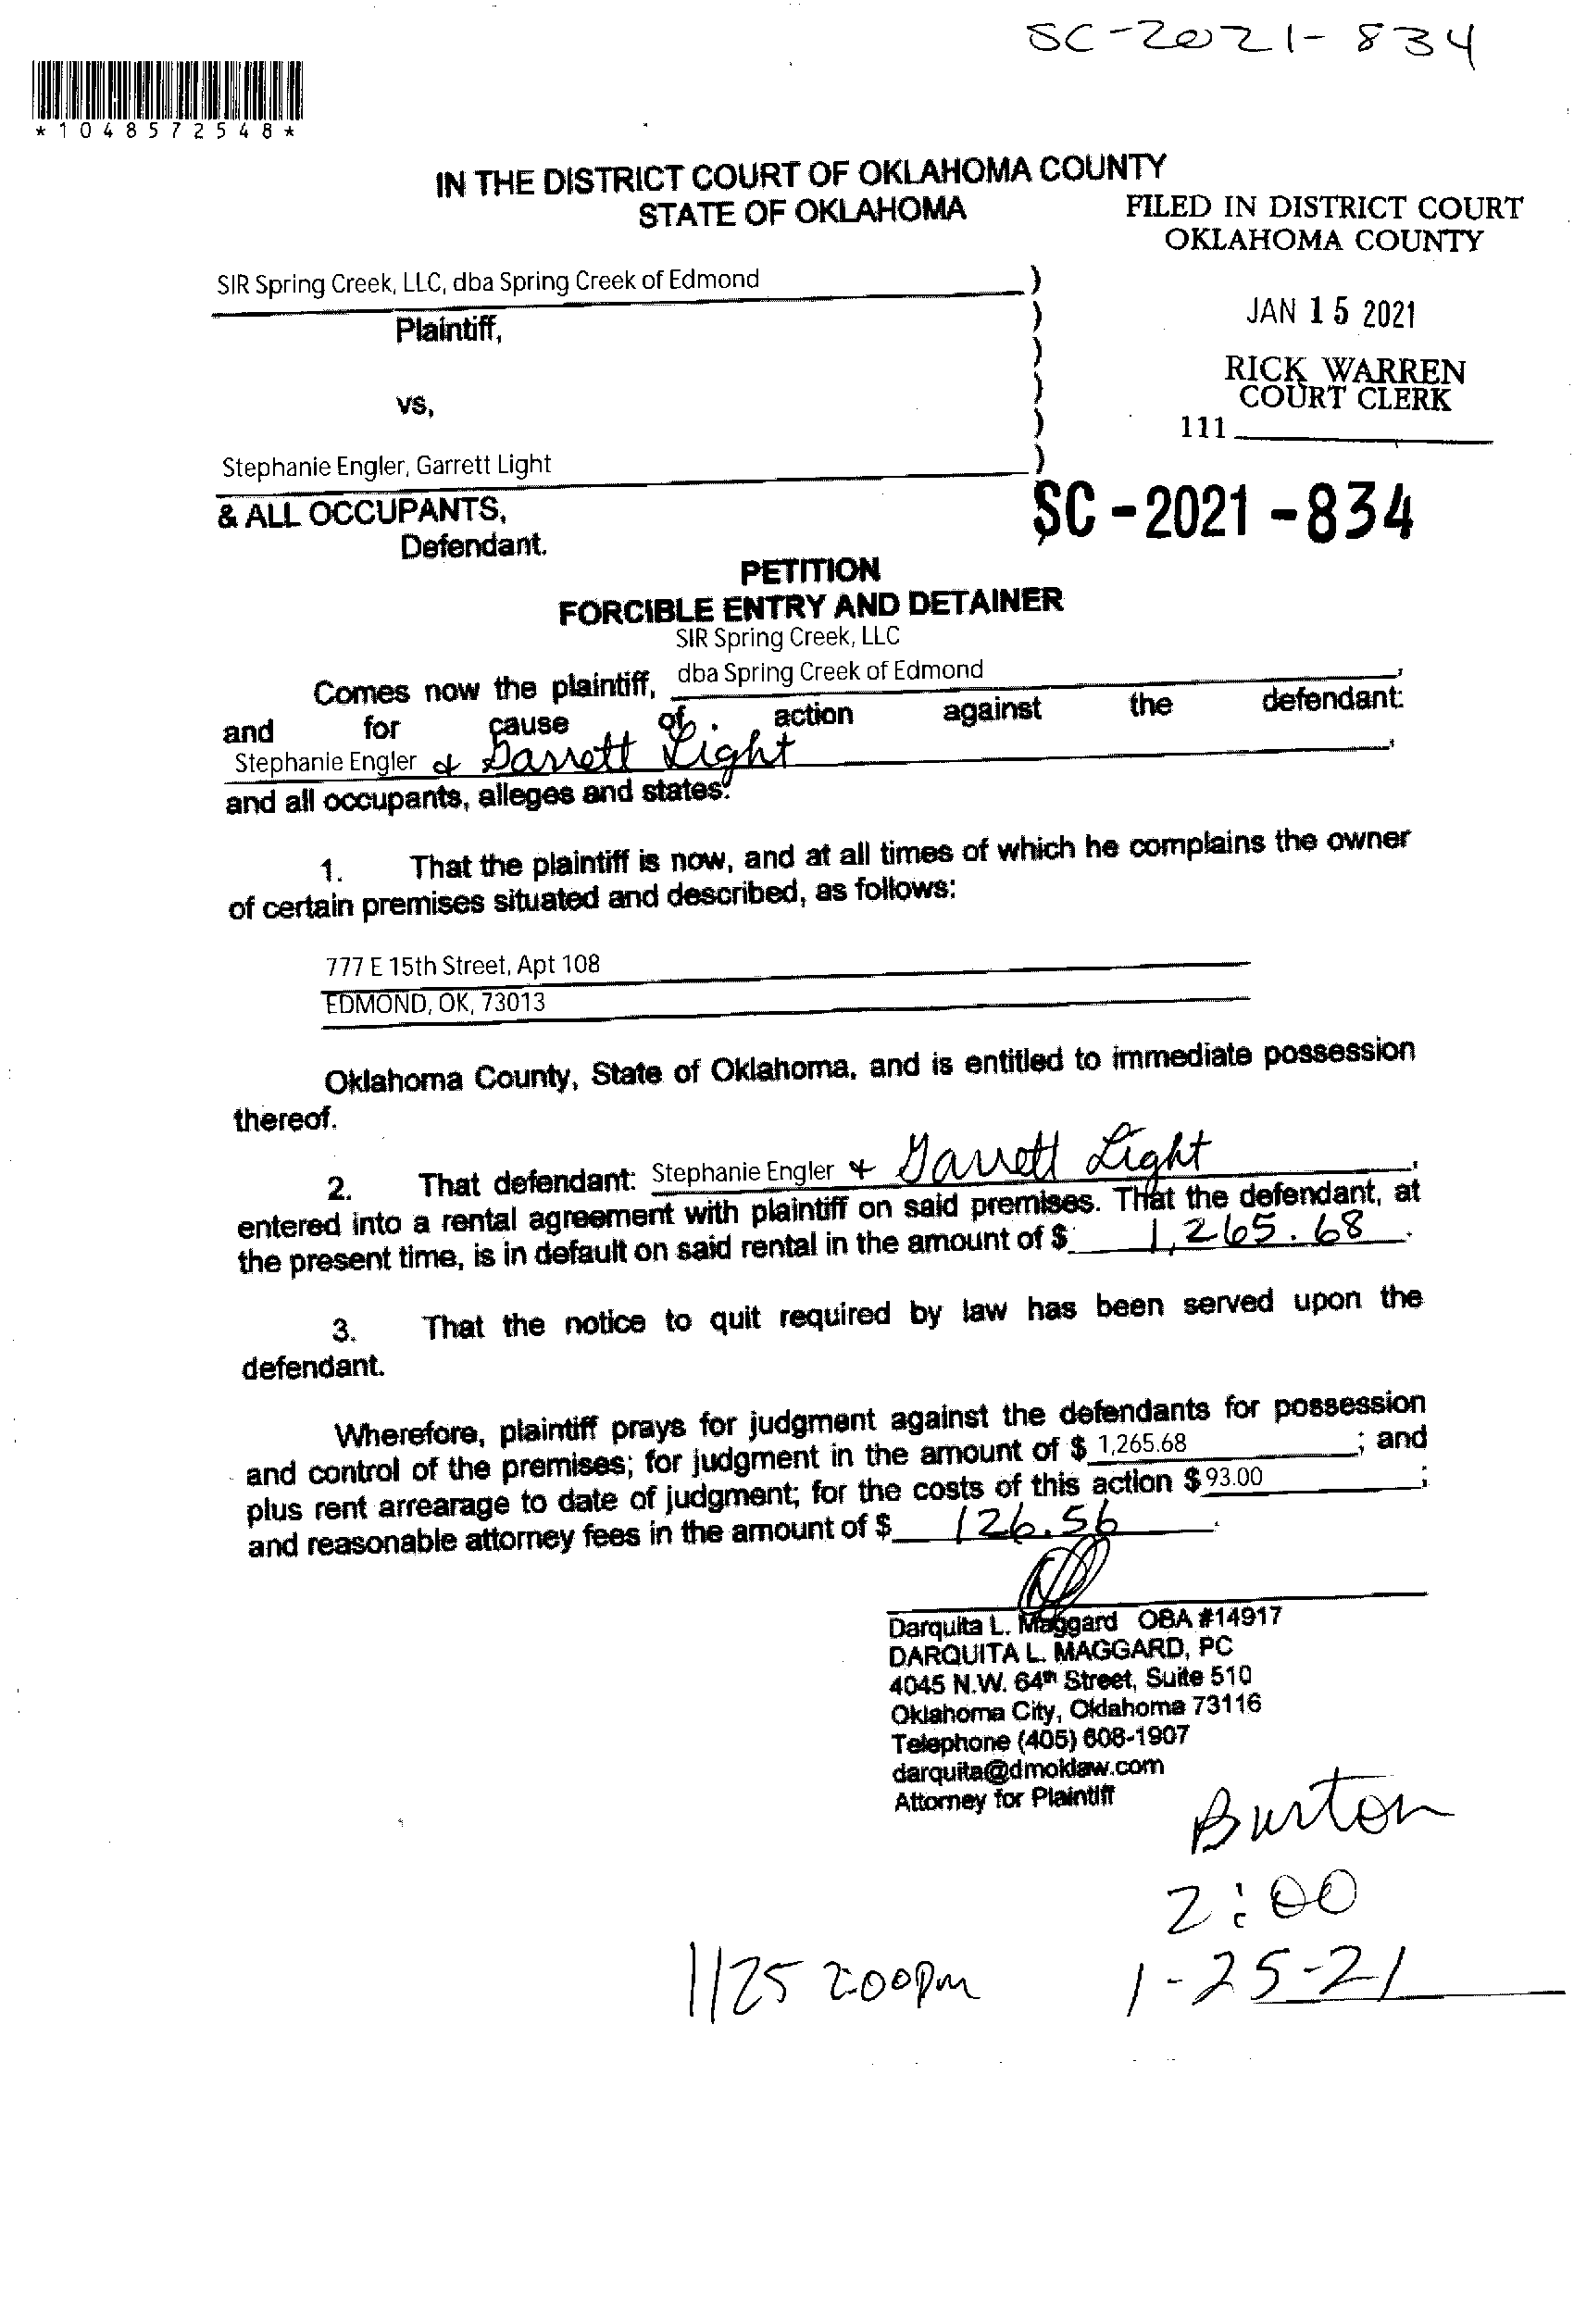 SC-2021-834
*1048572548*
IN THE DISTRICT COURT OF OKLAHOMA COUNTY
STATE OF OKLAHOMA
FILED IN DISTRICT COURT
OKLAHOMA COUNTY
SIR Spring Creek, LLC, dba Spring Creek of Edmond )
Plaintiff, )
JAN 15 2021
)
RICK WARREN
COURT CLERK
vs, )
)
111
Stephanie Engler, Garrett Light )
& ALL OCCUPANTS,
SC-2021-834
Defendant.
PETITION
FORCIBLE ENTRY AND DETAINER
SIR Spring Creek, LLC
Comes now the plaintiff, dba Spring Creek of Edmond,
and for cause of action against the defendant:
Stephanie Engler & Garrett Light,
and all occupants, alleges and states:
1. That the plaintiff is now, and at all times of which he complains the owner
of certain premises situated and described, as follows:
777 E 15th Street, Apt 108
EDMOND, OK, 73013
Oklahoma County, State of Oklahoma, and is entitled to immediate possession
thereof.
2. That defendant: Stephanie Engler & Garrett Light,
entered into a rental agreement with plaintiff on said premises. That the defendant, at
the present time, is in default on said rental in the amount of $ 1,265.68.
3. That the notice to quit required by law has been served upon the
defendant.
Wherefore, plaintiff prays for judgment against the defendants for possession
and control of the premises; for judgment in the amount of $ 1,265.68; and
plus rent arrearage to date of judgment; for the costs of this action $ 93.00;
and reasonable attorney fees in the amount of $ 126.56.
Darquita L. Maggard OBA #14917
DARQUITA L. MAGGARD, PC
4045 N.W. 64th Street, Suite 510
Oklahoma City, Oklahoma 73116
Telephone (405) 608-1907
darquita@dmoklaw.com
Attorney for Plaintiff
Burton
2:00
1/25 2:00pm
1-25-21